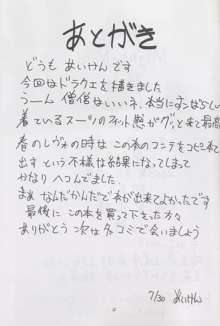 あとがき
どうも あいけんです
今回はドラクエを描きました
うーん 僧侶はいいネ、本当にすばらしい
着ているスーツのフィット感がグッと来て最高
春のレヴォの時は この本のコンテをコピー本
出す という不様な結果になってしまって
かなり ヘコんでました。
まぁ なんだかんだで本が出来てよかった
最後に この本を買って下さった方々
ありがとう 次は冬コミで会いましょう
7/30 あいけん